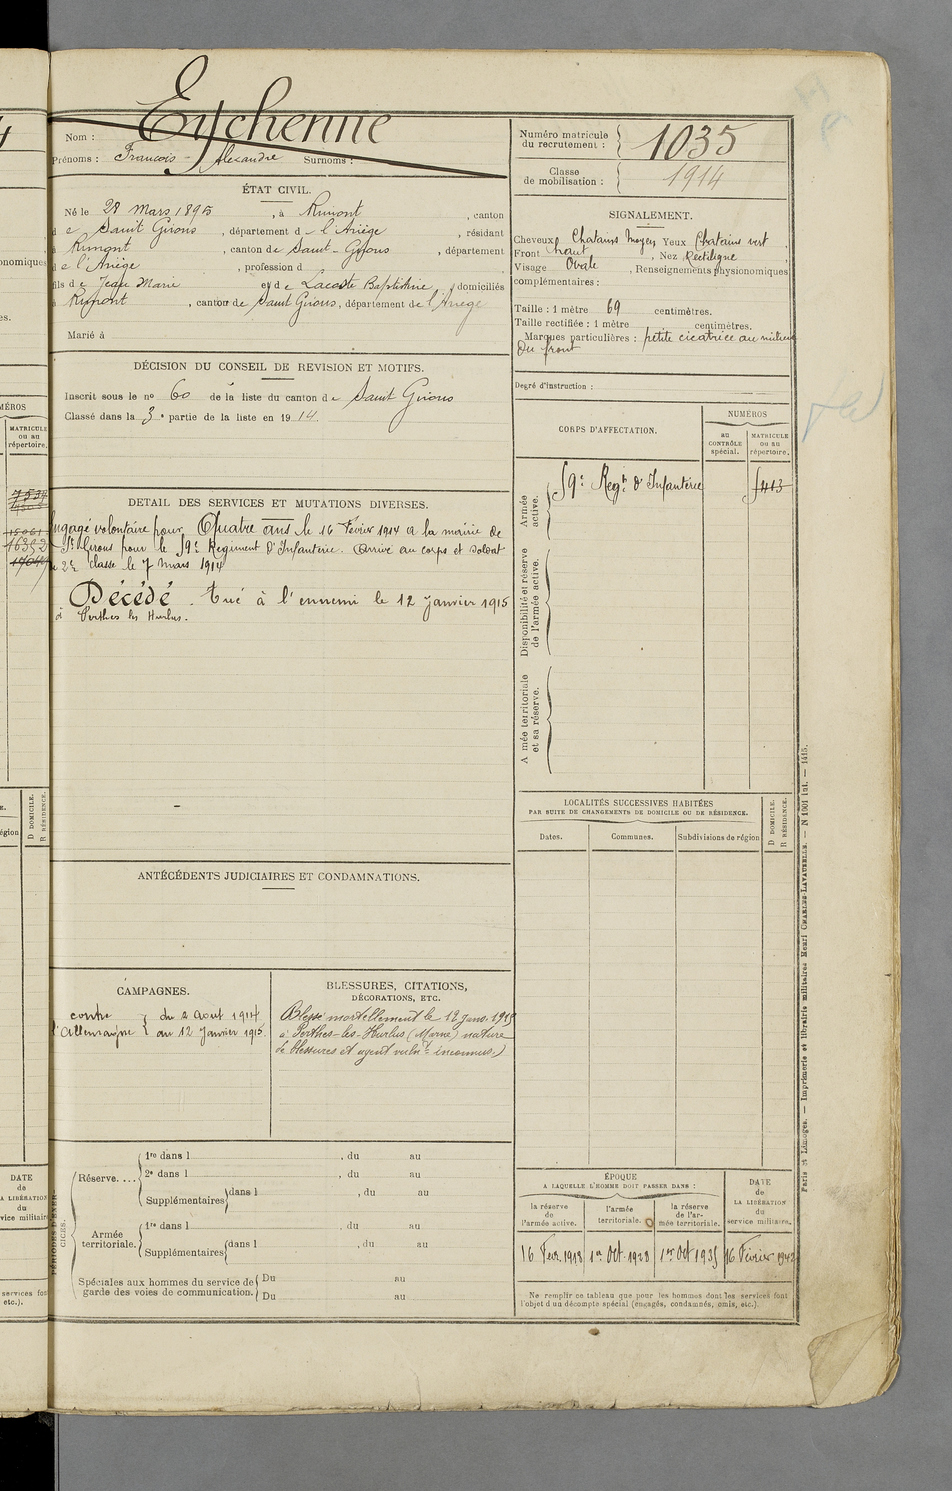 Eychenne
Nom :
Prénoms : François - Alexandre Surnoms :
ÉTAT CIVIL.
Né le 28 Mars 1895, à Rimont, canton
de Saint Girons, département d l'Ariège, résidant
à Rimont, canton de Saint-Girons, département
de l'Ariège, profession d
fils de Jean Marie et de Lacoste Baptistine, domiciliés
à Rimont, canton de Saint Girons, département de l'Ariège
Marié à
DÉCISION DU CONSEIL DE REVISION ET MOTIFS.
Inscrit sous le no 60 de la liste du canton de Saint Girons
Classé dans la 3e partie de la liste en 1914.
DETAIL DES SERVICES ET MUTATIONS DIVERSES.
Engagé volontaire pour Quatre ans le 16 Février 1914 a la mairie de
St Girons pour le 59e Régiment d'Infanterie. Arrivé au corps et soldat
de 2e classe le 7 mars 1914
Décédé. Tué à l'ennemi le 12 Janvier 1915
à Perthes les Hurlus.
ANTÉCÉDENTS JUDICIAIRES ET CONDAMNATIONS.
CAMPAGNES.
contre du 2 Aout 1914
l'Allemagne au 12 Janvier 1915
BLESSURES, CITATIONS,
DÉCORATIONS, ETC.
Blessé mortellement le 12 Janv. 1915
à Perthes-les-Hurlus (Marne) nature
de blessures et agent vulnt inconnus.)
PÉRIODES D'EXERCICES.
Réserve....
1re dans l , du au
2e dans l , du au
Supplémentaires dans l , du au
Armée territoriale.
1re dans l , du au
Supplémentaires dans l , du au
Spéciales aux hommes du service de
garde des voies de communication.
Du au
Du au
Numéro matricule
du recrutement : 1035
Classe
de mobilisation : 1914
SIGNALEMENT.
Cheveux Chatains Moyens Yeux Chatains vert
Front haut, Nez Rectiligne
Visage Ovale, Renseignements physionomiques
complémentaires :
Taille : 1 mètre 69 centimètres.
Taille rectifiée : 1 mètre centimètres.
Marques particulières : petite cicatrice au milieu
du front
Degré d'instruction :
CORPS D'AFFECTATION.
NUMÉROS
au
CONTRÔLE
spécial.
MATRICULE
ou au
répertoire.
Armée
active.
59e Regt d'Infanterie
5413
Disponibilité et réserve
de l'armée active.
Armée territoriale
et sa réserve.
LOCALITÉS SUCCESSIVES HABITÉES
PAR SUITE DE CHANGEMENTS DE DOMICILE OU DE RÉSIDENCE.
Dates.
Communes.
Subdivisions de région
D DOMICILE.
R RÉSIDENCE.
ÉPOQUE
A LAQUELLE L'HOMME DOIT PASSER DANS :
la réserve
de
l'armée active.
l'armée
territoriale.
la réserve
de l'ar-
mée territoriale.
DATE
de
LA LIBÉRATION
du
service militaire.
16 Fevr. 1918
1er Oct. 1928
1er Oct 1935
16 Février 1942
Ne remplir ce tableau que pour les hommes dont les services font
l'objet d'un décompte spécial (engagés, condamnés, omis, etc.).
Paris et Limoges. — Imprimerie et librairie militaires Henri CHARLES-LAVAUZELLE. — N 1001 Int. — 1415.
MÉROS
MATRICULE
ou au
répertoire.
D DOMICILE.
R RÉSIDENCE.
DATE
de
LA LIBÉRATION
du